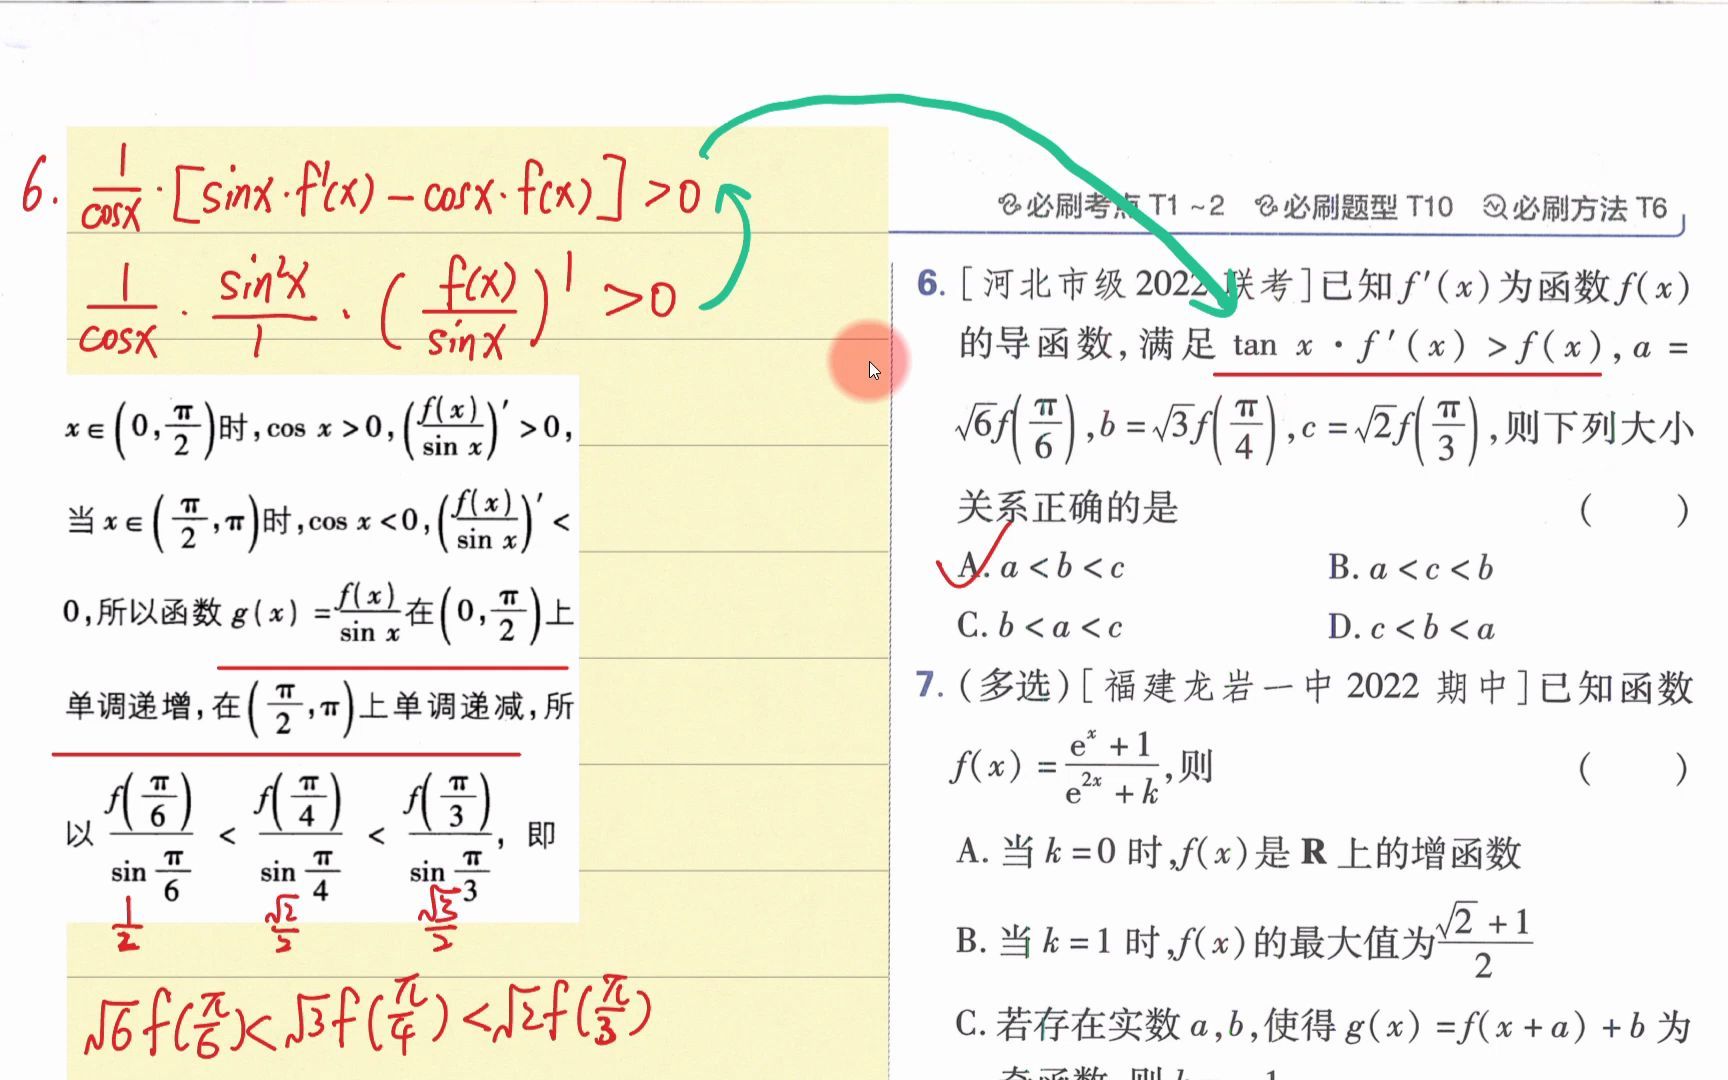 6. 1/cosx · [sinx·f'(x) − cosx·f(x)] >0
1/cosx · sin²x/1 · (f(x)/sinx)' >0
x∈(0,π/2)时,cos x>0,(f(x)/sin x)′>0,
当x∈(π/2,π)时,cos x<0,(f(x)/sin x)′<
0,所以函数g(x)=f(x)/sin x在(0,π/2)上
单调递增,在(π/2,π)上单调递减,所
以 f(π/6)/sin π/6 < f(π/4)/sin π/4 < f(π/3)/sin π/3, 即
1/2 √2/2 √3/2
√6f(π/6)<√3f(π/4)<√2f(π/3)
必刷考点 T1 ~2 必刷题型 T10 必刷方法 T6
6. [河北市级 2022 联考]已知f′(x)为函数f(x)
的导函数,满足 tan x·f′(x)>f(x),a=
√6f(π/6),b=√3f(π/4),c=√2f(π/3),则下列大小
关系正确的是 ( )
A. a<b<c B. a<c<b
C. b<a<c D. c<b<a
7. (多选)[福建龙岩一中 2022 期中]已知函数
f(x)=(eˣ+1)/(e²ˣ+k),则 ( )
A. 当k=0时,f(x)是R上的增函数
B. 当k=1时,f(x)的最大值为(√2+1)/2
C. 若存在实数a,b,使得g(x)=f(x+a)+b为